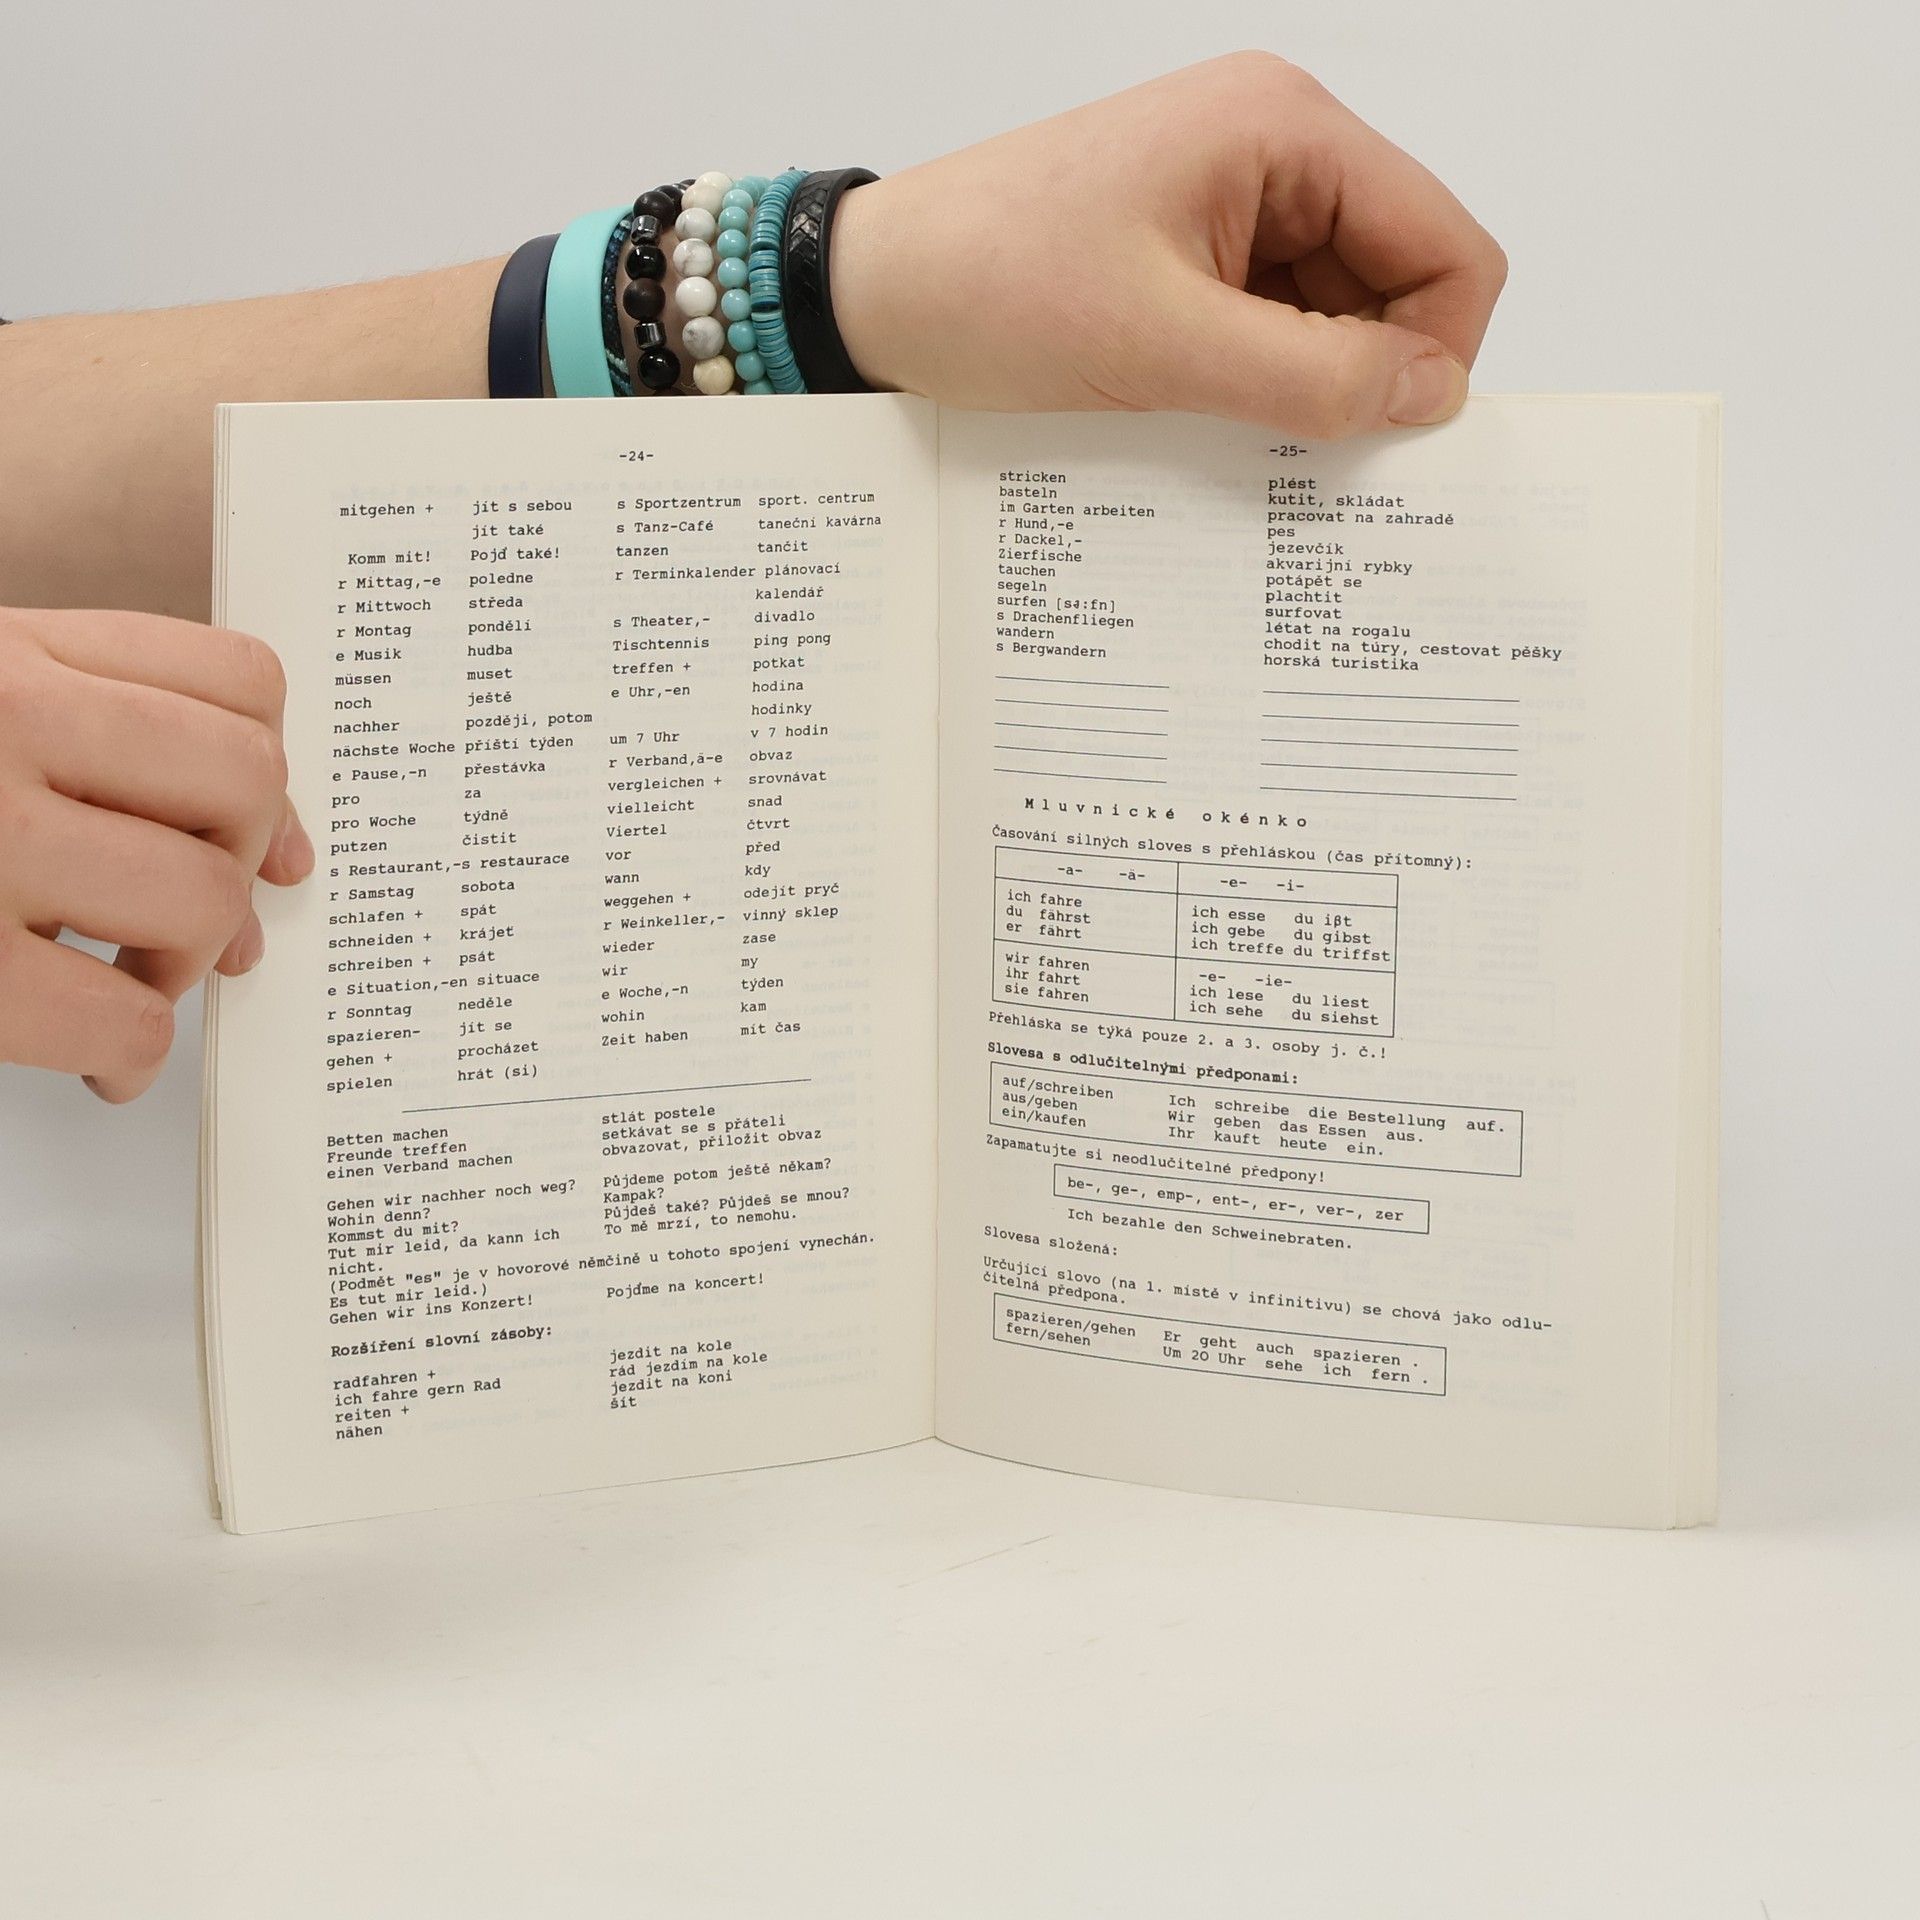 -24-
mitgehen + jít s sebou
jít také
Komm mit! Pojď také!
r Mittag,-e poledne
r Mittwoch středa
r Montag pondělí
e Musik hudba
müssen muset
noch ještě
nachher později, potom
nächste Woche příští týden
e Pause,-n přestávka
pro za
pro Woche týdně
putzen čistit
s Restaurant,-s restaurace
r Samstag sobota
schlafen + spát
schneiden + krájet
schreiben + psát
e Situation,-en situace
r Sonntag neděle
spazieren- jít se
gehen + procházet
spielen hrát (si)
s Sportzentrum sport. centrum
s Tanz-Café taneční kavárna
tanzen tančit
r Terminkalender plánovací
kalendář
s Theater,- divadlo
Tischtennis ping pong
treffen + potkat
e Uhr,-en hodina
hodinky
um 7 Uhr v 7 hodin
r Verband,ä-e obvaz
vergleichen + srovnávat
vielleicht snad
Viertel čtvrt
vor před
wann kdy
weggehen + odejít pryč
r Weinkeller,- vinný sklep
wieder zase
wir my
e Woche,-n týden
wohin kam
Zeit haben mít čas
Betten machen stlát postele
Freunde treffen setkávat se s přáteli
einen Verband machen obvazovat, přiložit obvaz
Gehen wir nachher noch weg? Půjdeme potom ještě někam?
Wohin denn? Kampak?
Kommst du mit? Půjdeš také? Půjdeš se mnou?
Tut mir leid, da kann ich To mě mrzí, to nemohu.
nicht.
(Podmět "es" je v hovorové němčině u tohoto spojení vynechán.
Es tut mir leid.)
Gehen wir ins Konzert! Pojďme na koncert!
Rozšíření slovní zásoby:
radfahren + jezdit na kole
ich fahre gern Rad rád jezdím na kole
reiten + jezdit na koni
nähen šít
-25-
stricken plést
basteln kutit, skládat
im Garten arbeiten pracovat na zahradě
r Hund,-e pes
r Dackel,- jezevčík
Zierfische akvarijní rybky
tauchen potápět se
segeln plachtit
surfen [sə:fn] surfovat
s Drachenfliegen létat na rogalu
wandern chodit na túry, cestovat pěšky
s Bergwandern horská turistika
Mluvnické okénko
Časování silných sloves s přehláskou (čas přítomný):
-a- -ä- -e- -i-
ich fahre ich esse du ißt
du fährst ich gebe du gibst
er fährt ich treffe du triffst
wir fahren -e- -ie-
ihr fahrt ich lese du liest
sie fahren ich sehe du siehst
Přehláska se týká pouze 2. a 3. osoby j. č.!
Slovesa s odlučitelnými předponami:
auf/schreiben Ich schreibe die Bestellung auf.
aus/geben Wir geben das Essen aus.
ein/kaufen Ihr kauft heute ein.
Zapamatujte si neodlučitelné předpony!
be-, ge-, emp-, ent-, er-, ver-, zer
Ich bezahle den Schweinebraten.
Slovesa složená:
Určující slovo (na 1. místě v infinitivu) se chová jako odlu-
čitelná předpona.
spazieren/gehen Er geht auch spazieren .
fern/sehen Um 20 Uhr sehe ich fern .